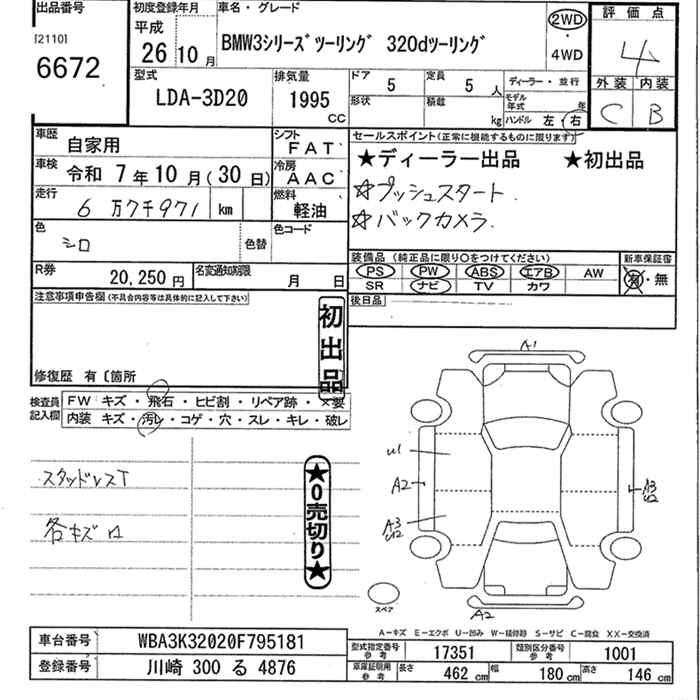 出品番号
[2110]
6672
初度登録年月
平成
26 10月
車名・グレード
BMW3シリーズツーリング 320dツーリング
2WD
・
4WD
評価点
4
外装 内装
C B
型式
LDA-3D20
排気量
1995
CC
ドア 5
定員 5 人
形状
積載 kg
ディーラー・並行
モデル年式 年
ハンドル 左・右
車歴 自家用
シフト FAT
車検 令和 7年10月(30日)
冷房 AAC
走行 6万7千971 km
燃料 軽油
色 シロ
色替
色コード
R券 20,250円
名変通知期限 月 日
セールスポイント(正常に機能するものに限ります)
★ディーラー出品 ★初出品
☆プッシュスタート
☆バックカメラ
装備品(純正品に限り○をつけてください)
新車保証書
PS PW ABS エアB AW
SR ナビ TV カワ
有・無
後日品
注意事項申告欄(不具合内容等は具体的に記入して下さい)
初出品
修復歴 有〔箇所
検査員記入欄
FW キズ・飛石・ヒビ割・リペア跡・×要
内装 キズ・汚レ・コゲ・穴・スレ・キレ・破レ
スタッドレスT
各キズロ
★0売切り★
A1
U1
A2
A3
U2
A3
U2
A2
スペア
A-キズ E-エクボ U-凹み W-補修跡 S-サビ C-腐食 XX-交換済
車台番号 WBA3K32020F795181
登録番号 川崎 300 る 4876
型式指定番号参考 17351
類別区分番号参考 1001
車庫証明用参考 長さ 462 cm 幅 180 cm 高さ 146 cm